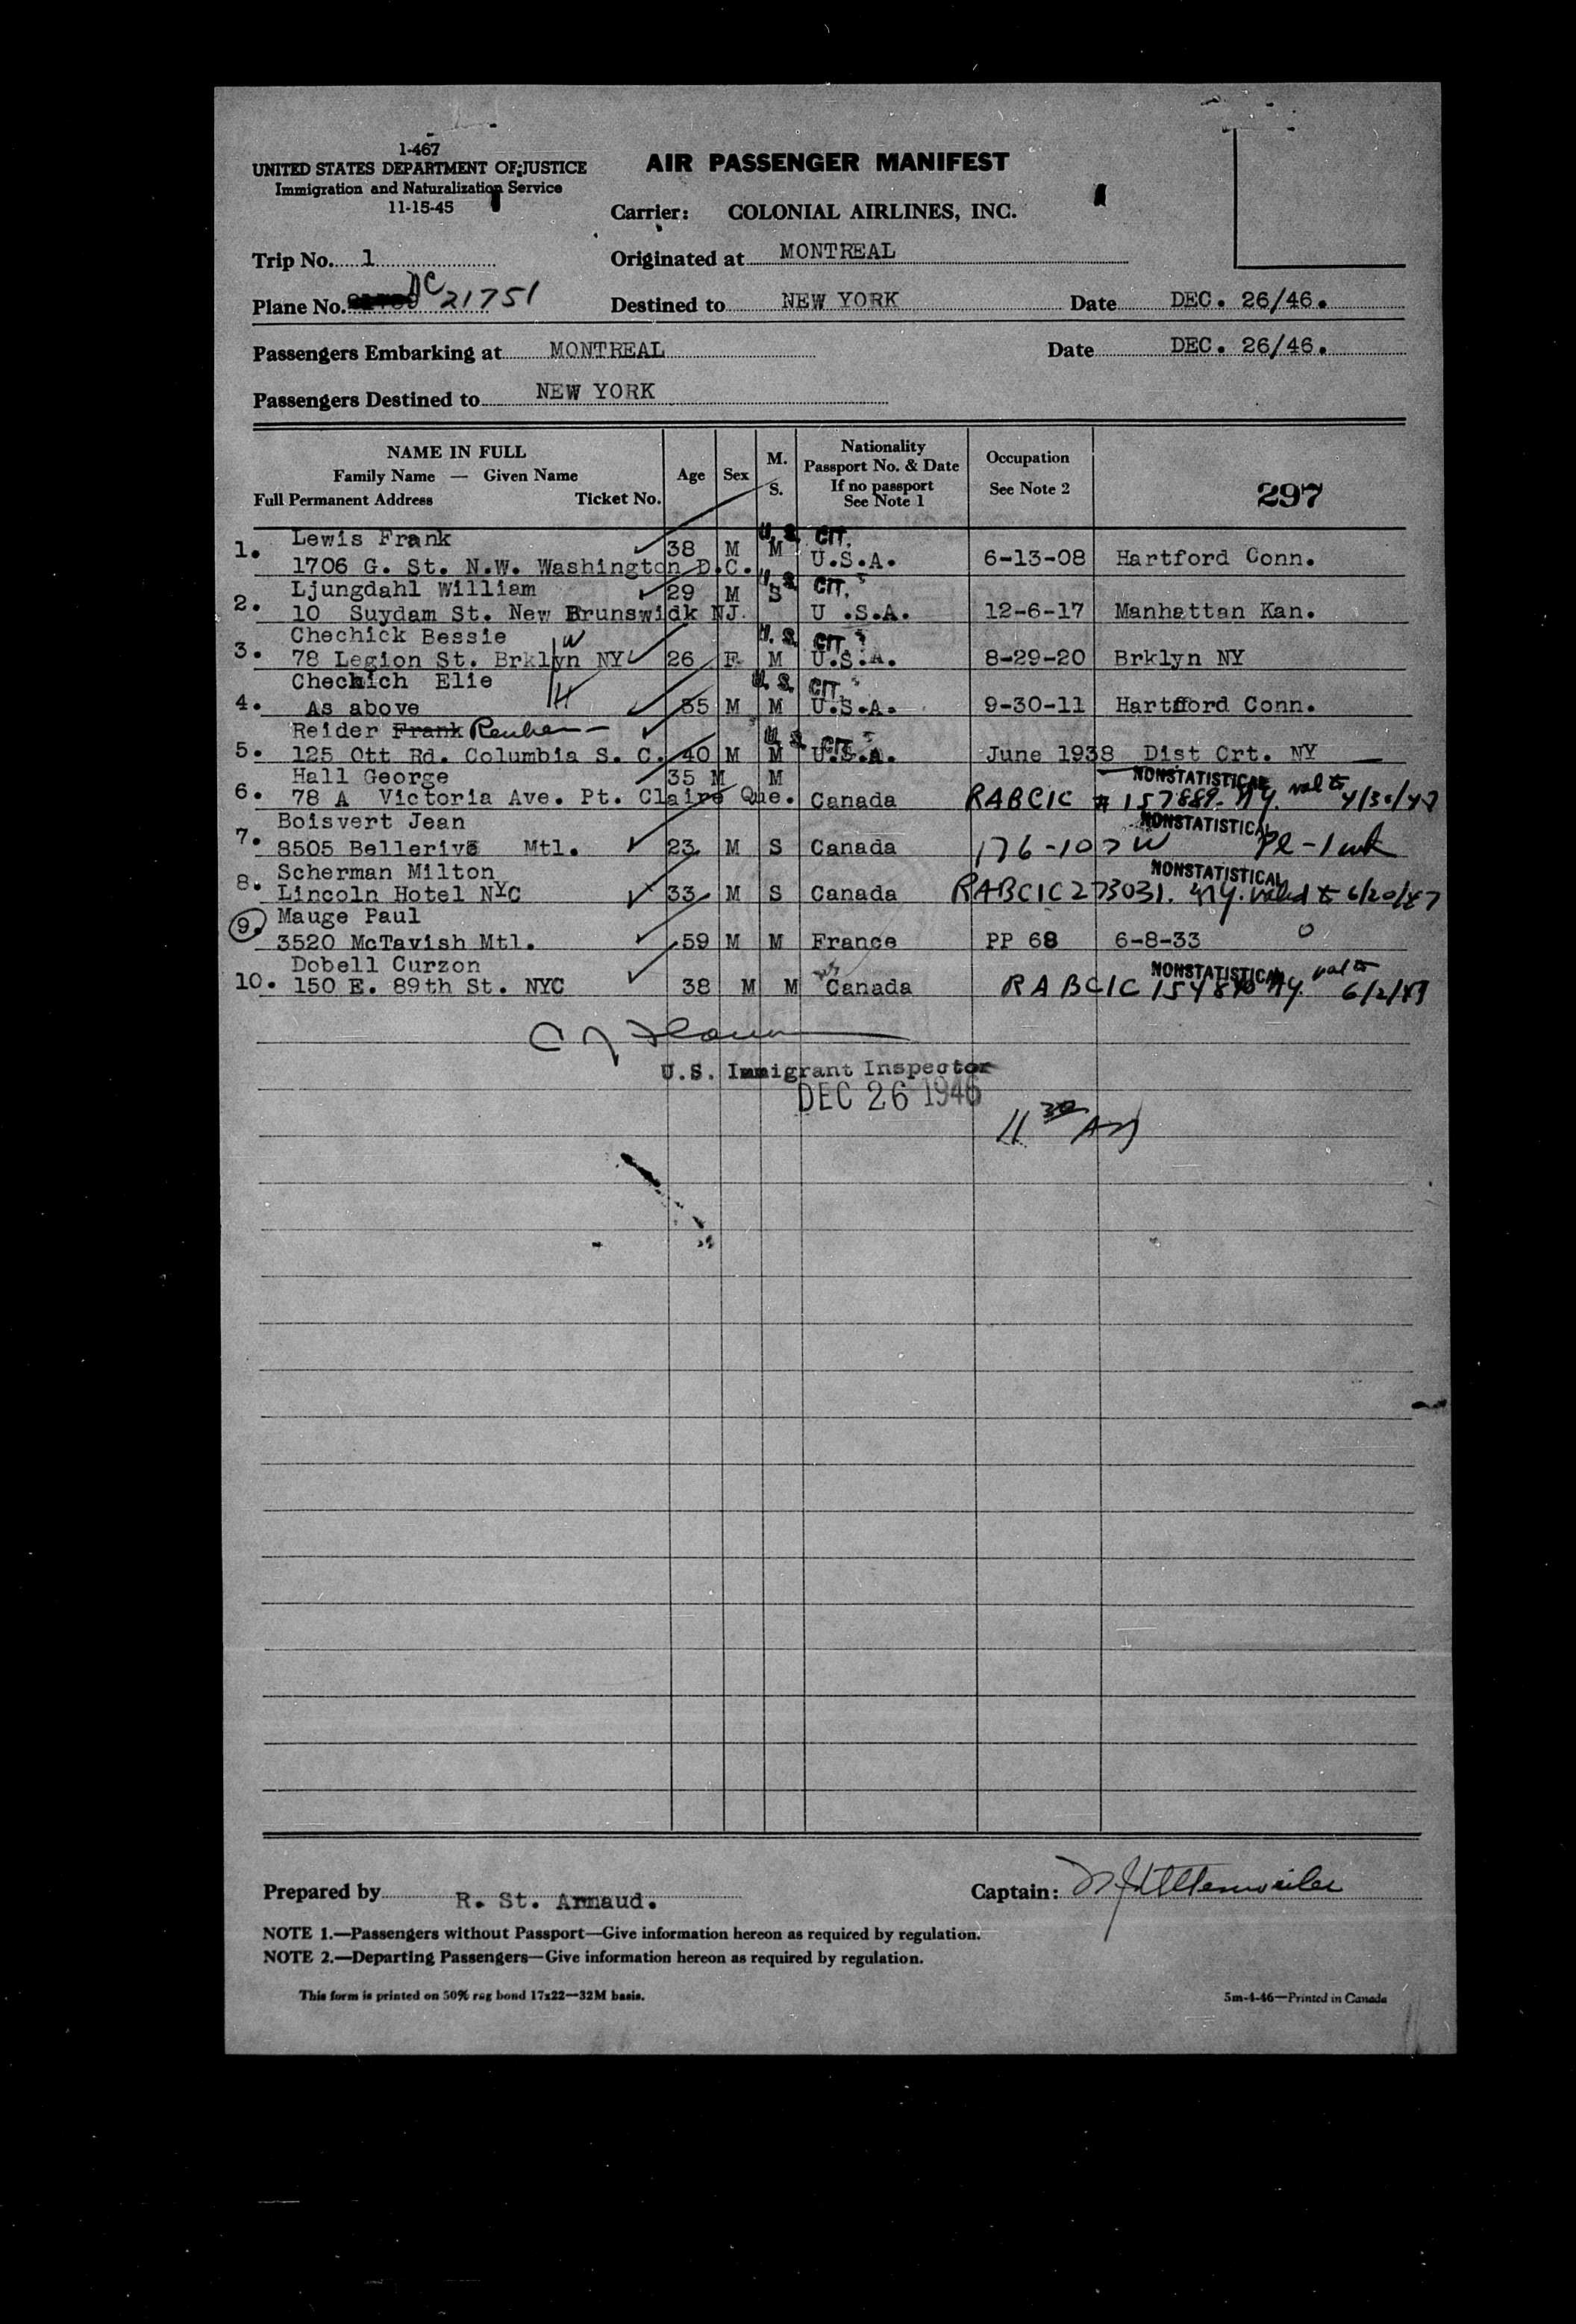 1-467
UNITED STATES DEPARTMENT OF JUSTICE
Immigration and Naturalization Service
11-15-45
AIR PASSENGER MANIFEST
Carrier: COLONIAL AIRLINES, INC.
Trip No. 1
Originated at MONTREAL
Plane No. DC 21751
Destined to NEW YORK Date DEC. 26/46.
Passengers Embarking at MONTREAL Date DEC. 26/46.
Passengers Destined to NEW YORK
NAME IN FULL
Family Name — Given Name
Full Permanent Address Ticket No.
Age
Sex
M.
S.
Nationality
Passport No. & Date
If no passport
See Note 1
Occupation
See Note 2
297
Lewis Frank U.S. CIT.
1. 1706 G. St. N.W. Washington D.C. 38 M M U.S.A. 6-13-08 Hartford Conn.
Ljungdahl William U.S. CIT.
2. 10 Suydam St. New Brunswidk NJ. 29 M S U .S.A. 12-6-17 Manhattan Kan.
Chechick Bessie W U.S. CIT.
3. 78 Legion St. Brklyn NY 26 F M U.S.A. 8-29-20 Brklyn NY
Chechich Elie H U.S. CIT.
4. As above 35 M M U.S.A. 9-30-11 Hartford Conn.
Reider Frank Reuben U.S. CIT.
5. 125 Ott Rd. Columbia S. C. 40 M M U.S.A. June 1938 Dist Crt. NY
Hall George 35 M M NONSTATISTICAL val to
6. 78 A Victoria Ave. Pt. Claire Que. Canada RABCIC # 157889 NY. 4/30/47
Boisvert Jean NONSTATISTICAL
7. 8505 Bellerive Mtl. 23 M S Canada 176-107 W Pl - 1 wk
Scherman Milton NONSTATISTICAL
8. Lincoln Hotel NYC 33 M S Canada RABCIC 273031. NY. valid to 6/20/47
9. Mauge Paul
3520 McTavish Mtl. 59 M M France PP 68 6-8-33 0
Dobell Curzon NONSTATISTICAL val to
10. 150 E. 89th St. NYC 38 M M Canada RABCIC NY. 6/2/47
U.S. Immigrant Inspector
DEC 26 1946
11 30 AM
Prepared by R. St. Arnaud.
Captain:
NOTE 1.—Passengers without Passport—Give information hereon as required by regulation.
NOTE 2.—Departing Passengers—Give information hereon as required by regulation.
This form is printed on 50% rag bond 17x22—32M basis.
5m-4-46—Printed in Canada